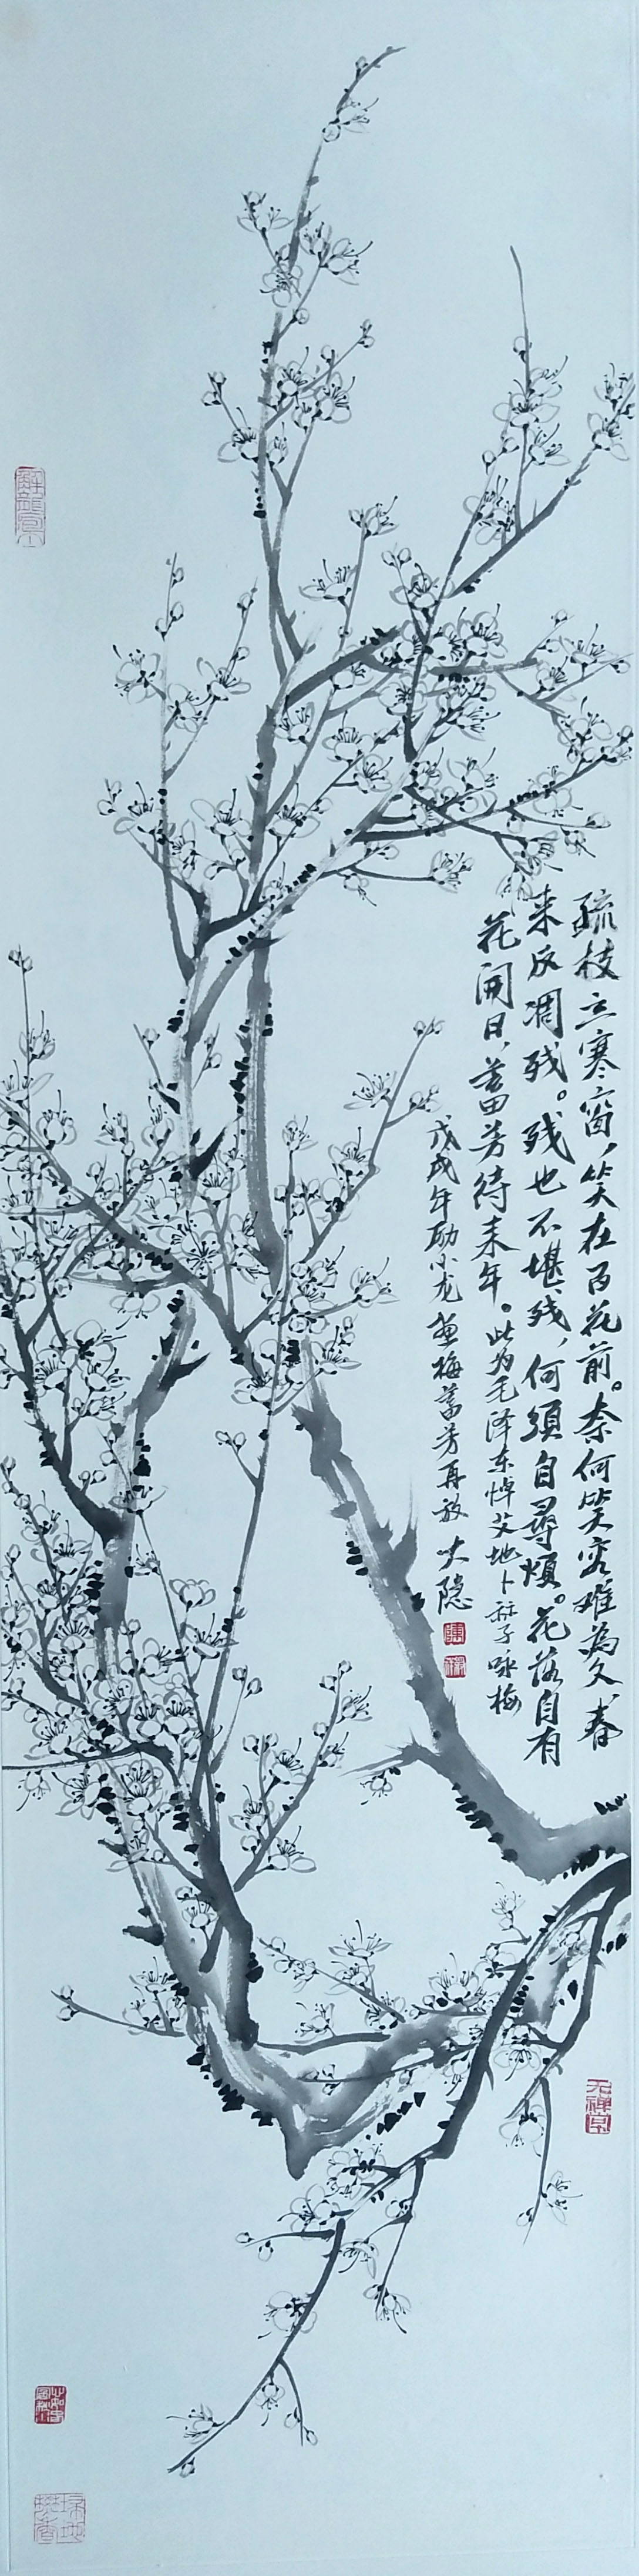 疏枝立寒窗，笑在百花前。奈何笑容难為久，春
来反凋残。残也不堪残，何須自尋煩。花落自有
花開日，蓄芳待来年。此为毛泽东悼艾地卜祘子咏梅
戊戌年劢小龙画梅蓄芳再放 大隐